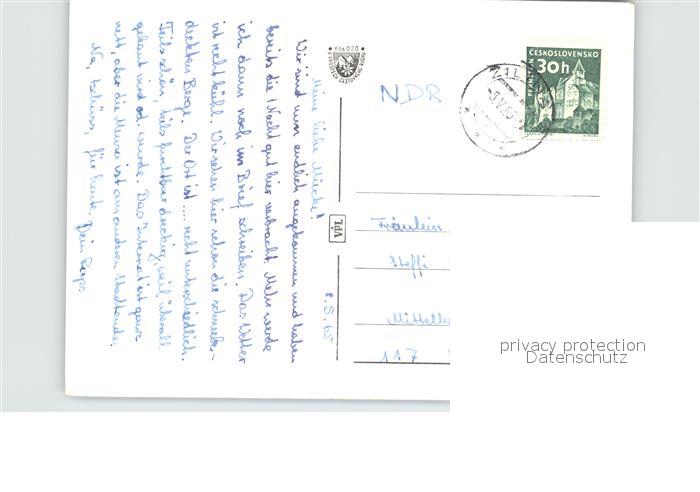 8.5.65
Meine liebe Mücke!
Wir sind nun endlich angekommen und haben
bereits die 1. Nacht gut hier verbracht. Mehr werde
ich dann noch im Brief schreiben. Das Wetter
ist recht kühl. Wir sehen hier schon die schneebe-
deckten Berge. Der Ort ist .... recht unterschiedlich.
Teils schön, teils furchtbar dreckig, weil überall
gebaut wird od. wurde. Das Internat ist ganz
nett, aber die Mensa ist am anderen Stadtende.
Na, tschüss, für heute. Dein Peps
Kčs 0,20
VPL
NDR
ČESKOSLOVENSKO
30 h
PERNŠTEJN
ŽILINA
Fräulein
Steffi
117
privacy protection
Datenschutz